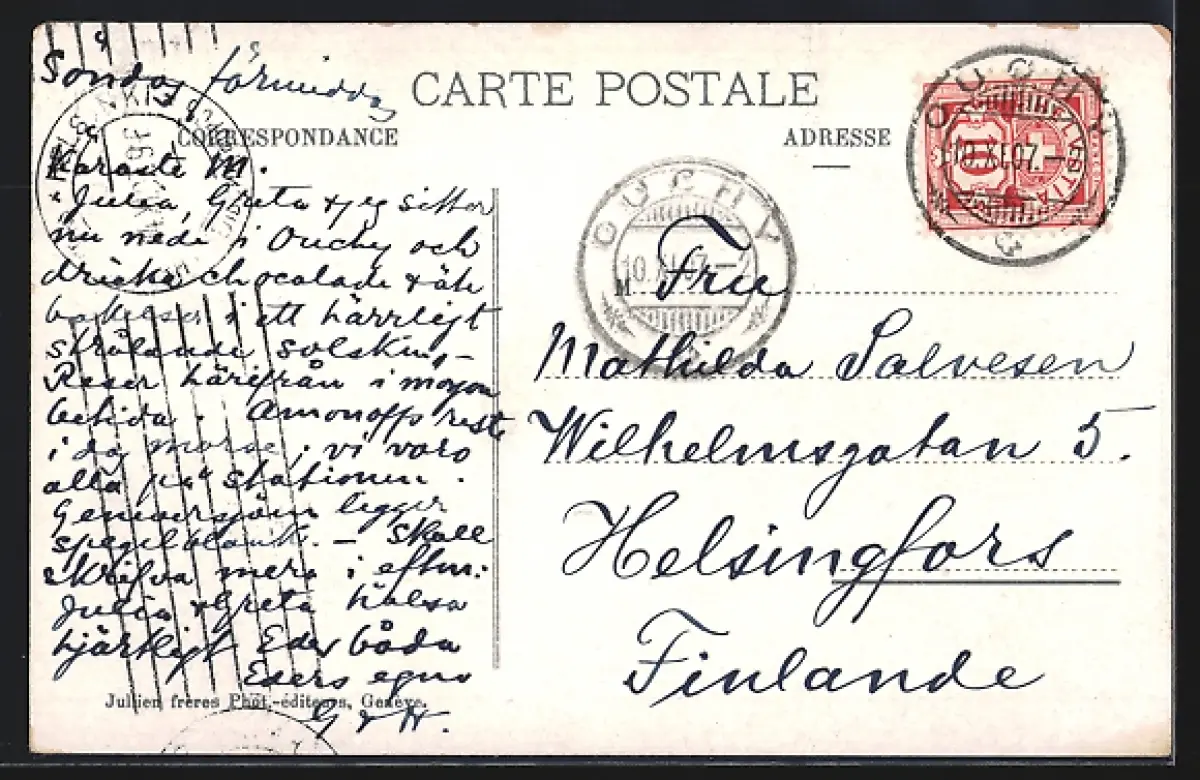 Söndag förmiddag
CARTE POSTALE
CORRESPONDANCE
ADRESSE
Käraste M.
Julia, Greta & jag sitter
nu nede i Ouchy och
dricka chocolade & äta
bakelser i ett härrligt
strålande solsken, –
Reser härifrån i morgon
betida. Amonoffs reste
i dag morse, vi voro
alla på stationen.
Geneversjön ligger
spegelblank. – Skall
skrifva mera i efterm:
Julia & Greta hälsa
hjärtligt Eder båda
Eders egna
G & H.
Jullien frères Phot.-éditeurs, Genève.
OUCHY
10.XI.07.
HELVETIA
10
OUCHY
10.XI.07.
HELSINKI
M
Fru
Mathilda Salvesen
Wilhelmsgatan 5.
Helsingfors
Finlande